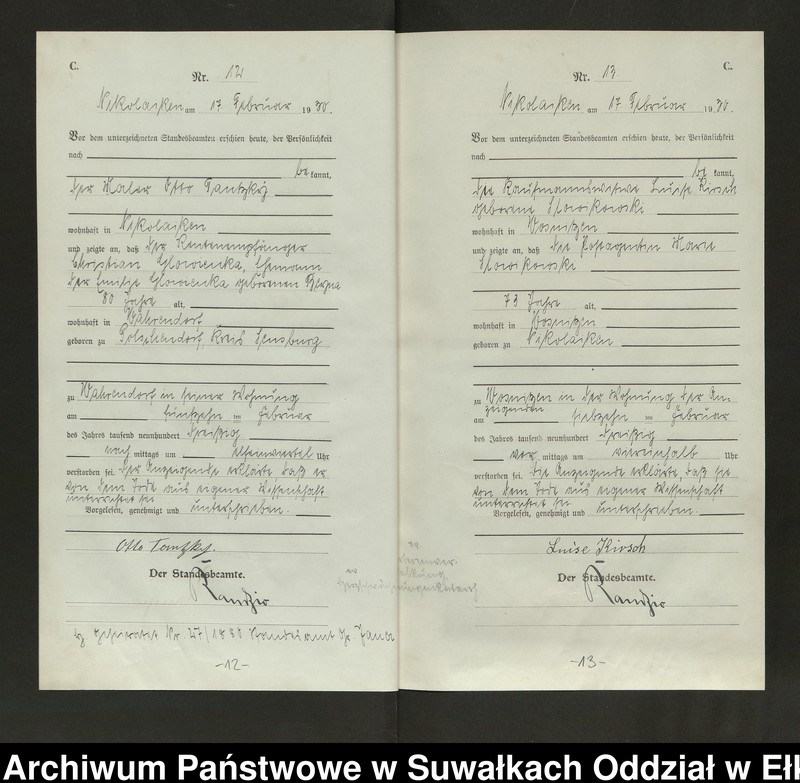 C.
Nr. 12
Nikolaiken am 17 Februar 1930.
Vor dem unterzeichneten Standesbeamten erschien heute, der Persönlichkeit
nach
be kannt,
der Maler Otto Tantzky
wohnhaft in Nikolaiken
und zeigte an, daß der Rentenempfänger
Christian Glowienka, Ehemann
der Emilie Glowienka geborenen
80 Jahre alt,
wohnhaft in Wahrendorf
geboren zu Polschendorf, Kreis Sensburg
zu Wahrendorf in seiner Wohnung
am fünfzehn ten Februar
des Jahres tausend neunhundert dreißig
nach mittags um Uhr
verstorben sei. Der Anzeigende erklärte, daß er
von dem Tode aus eigener Wissenschaft
unterrichtet sei
Vorgelesen, genehmigt und unterschrieben.
Otto Tantzky.
Der Standesbeamte.
Nr. 27/1880 Standesamt
-12-
C.
Nr. 13
Nikolaiken am 17 Februar 1930.
Vor dem unterzeichneten Standesbeamten erschien heute, der Persönlichkeit
nach
be kannt,
die Kaufmannswitwe Luise Kirsch
geborene Slowikowski
wohnhaft in Wosnitzen
und zeigte an, daß die Postagentin Marie
Slowikowski
73 Jahre alt,
wohnhaft in Wosnitzen
geboren zu Nikolaiken
zu Wosnitzen in der Wohnung der An-
zeigenden
am siebzehn ten Februar
des Jahres tausend neunhundert dreißig
vor mittags um viereinhalb Uhr
verstorben sei. Die Anzeigende erklärte, daß sie
von dem Tode aus eigener Wissenschaft
unterrichtet sei
Vorgelesen, genehmigt und unterschrieben.
Luise Kirsch
Der Standesbeamte.
-13-
Archiwum Państwowe w Suwałkach Oddział w Ełk